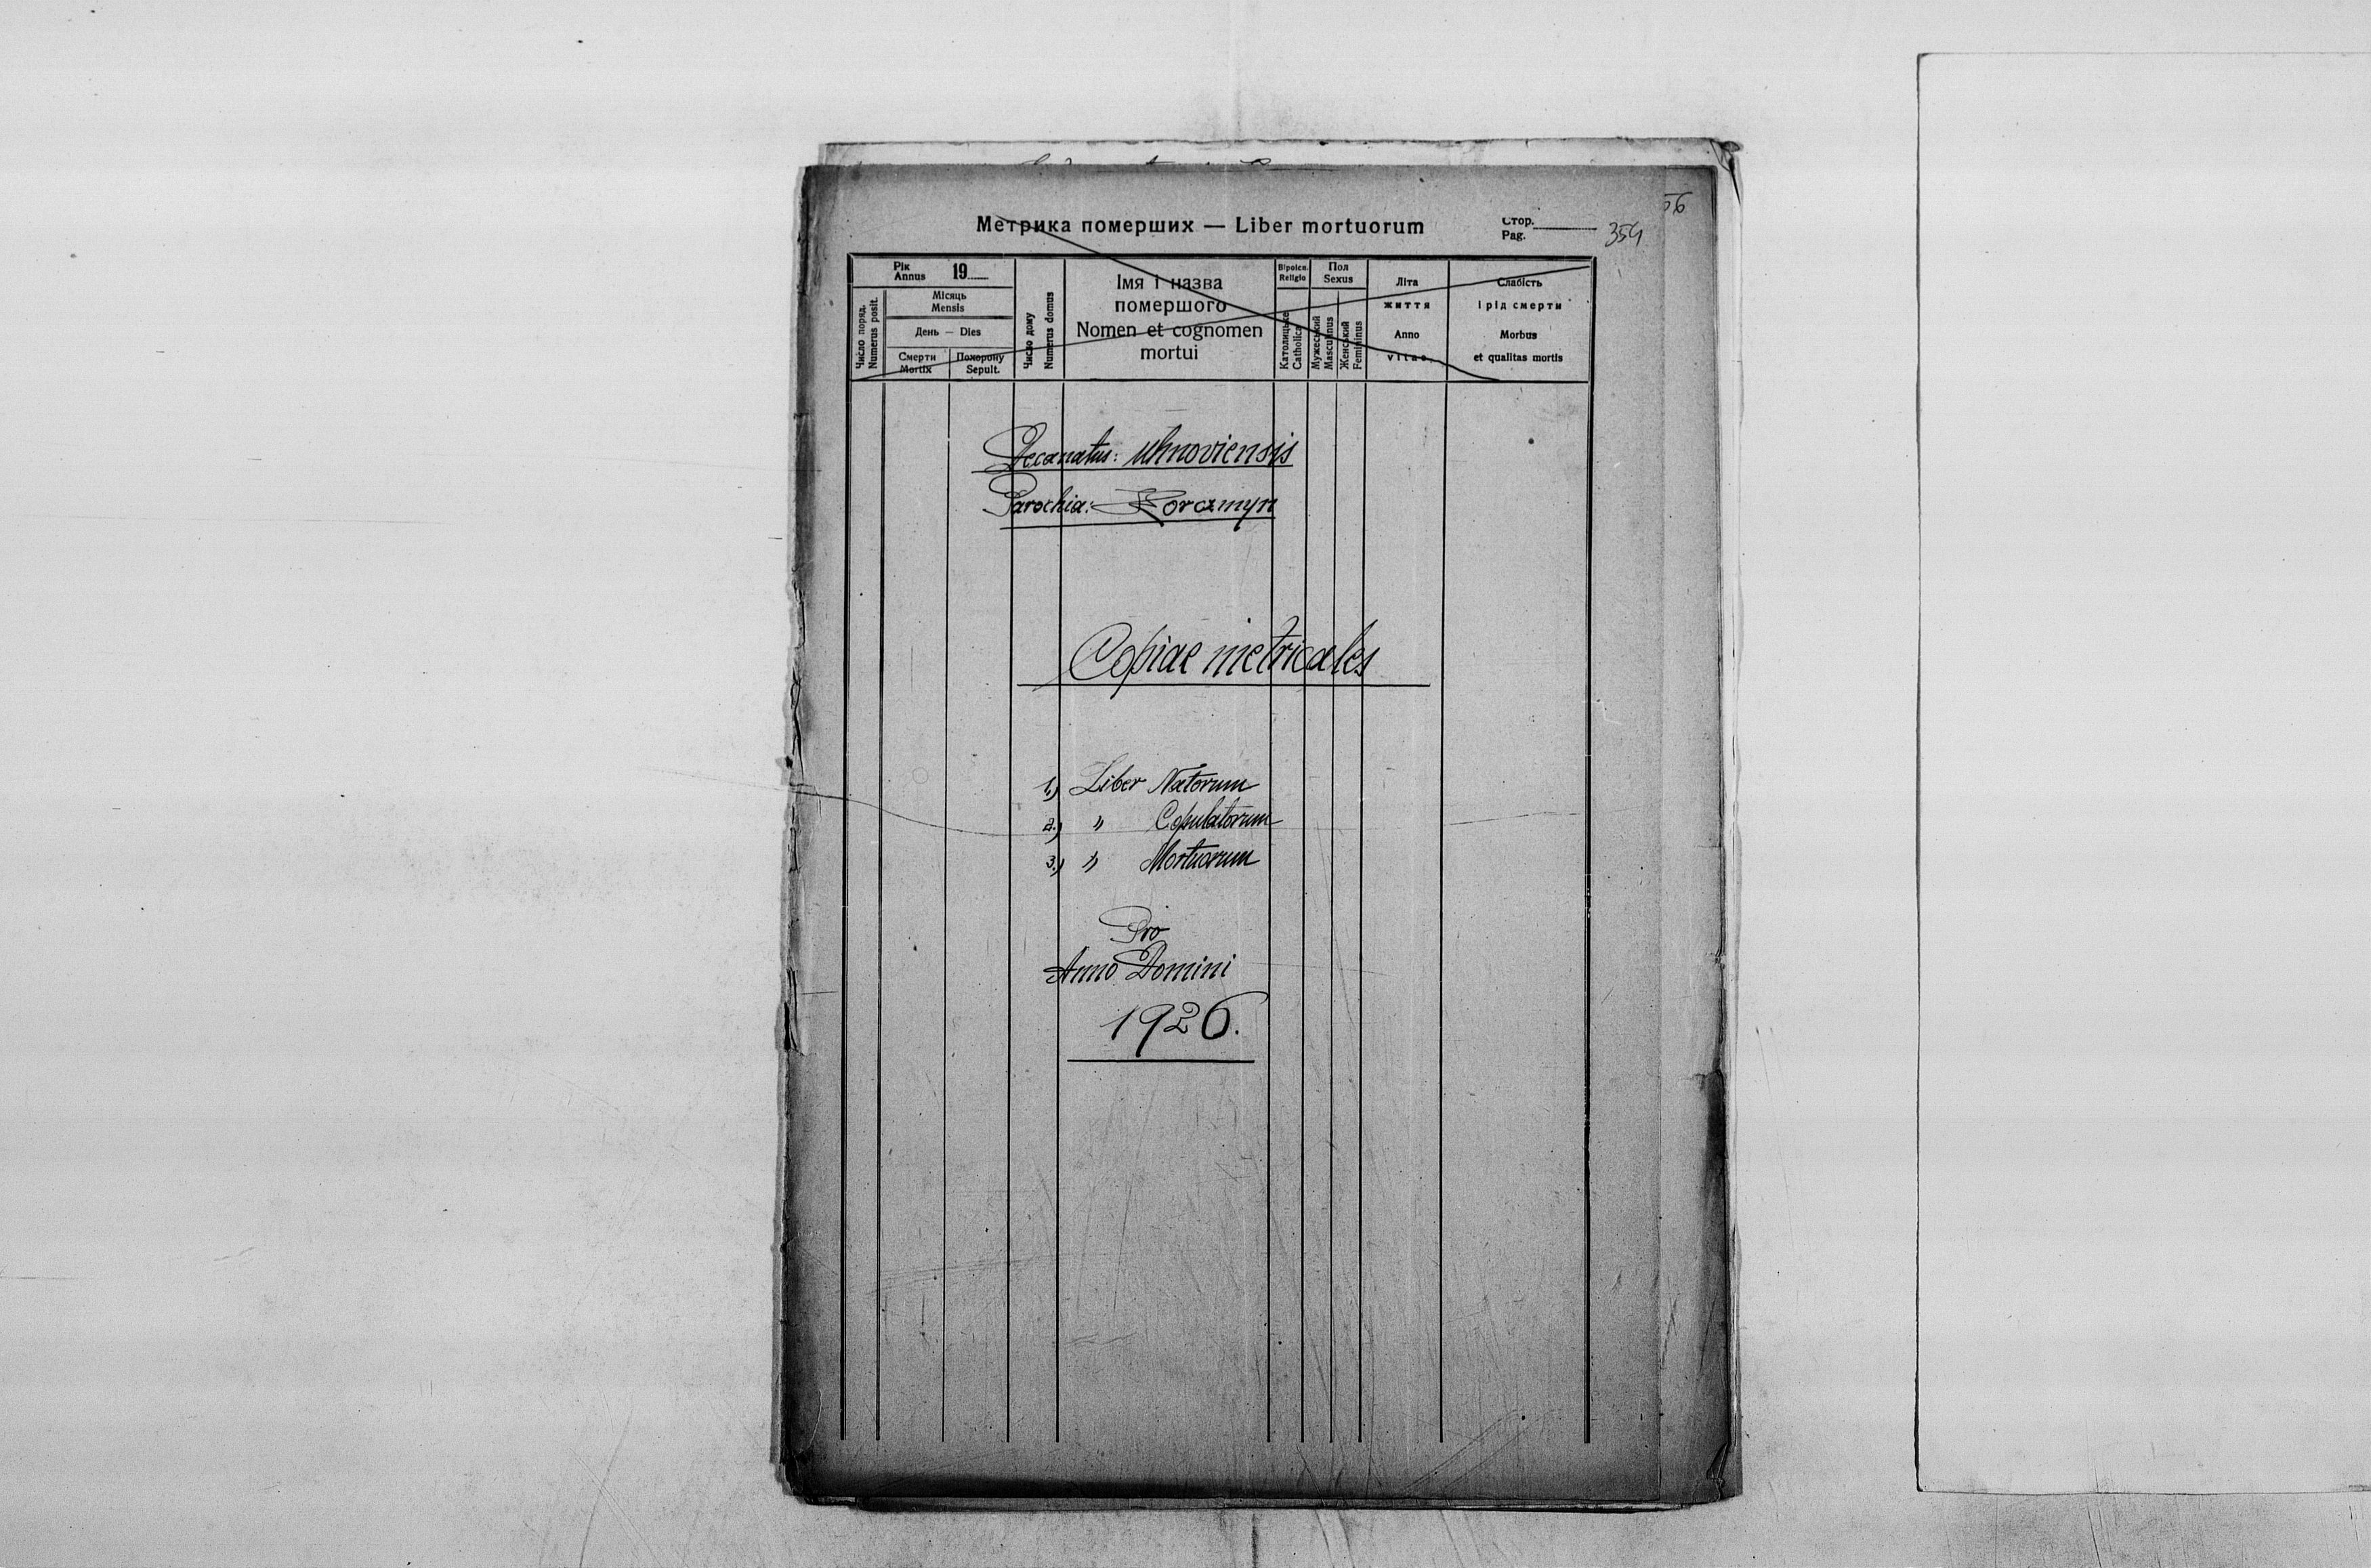 56
Метрика померших — Liber mortuorum
Стор.
Pag.
354
Рік
Annus 19
Число поряд.
Numerus posit.
Місяць
Mensis
День — Dies
Смерти
Mortix
Похорону
Sepult.
Число дому
Numerus domus
Імя і назва
помершого
Nomen et cognomen
mortui
Віроісп.
Religio
Католицьке
Catholica
Пол
Sexus
Мужеський
Masculinus
Женський
Femininus
Літа
життя
Anno
vitae
Слабість
і рід смерти
Morbus
et qualitas mortis
Decanatus: Uhnoviensis
Parochia: Korczmyn
Copiae metricales
1.) Liber Natorum
2.) " Copulatorum
3.) " Mortuorum
Pro
Anno Domini
1926.